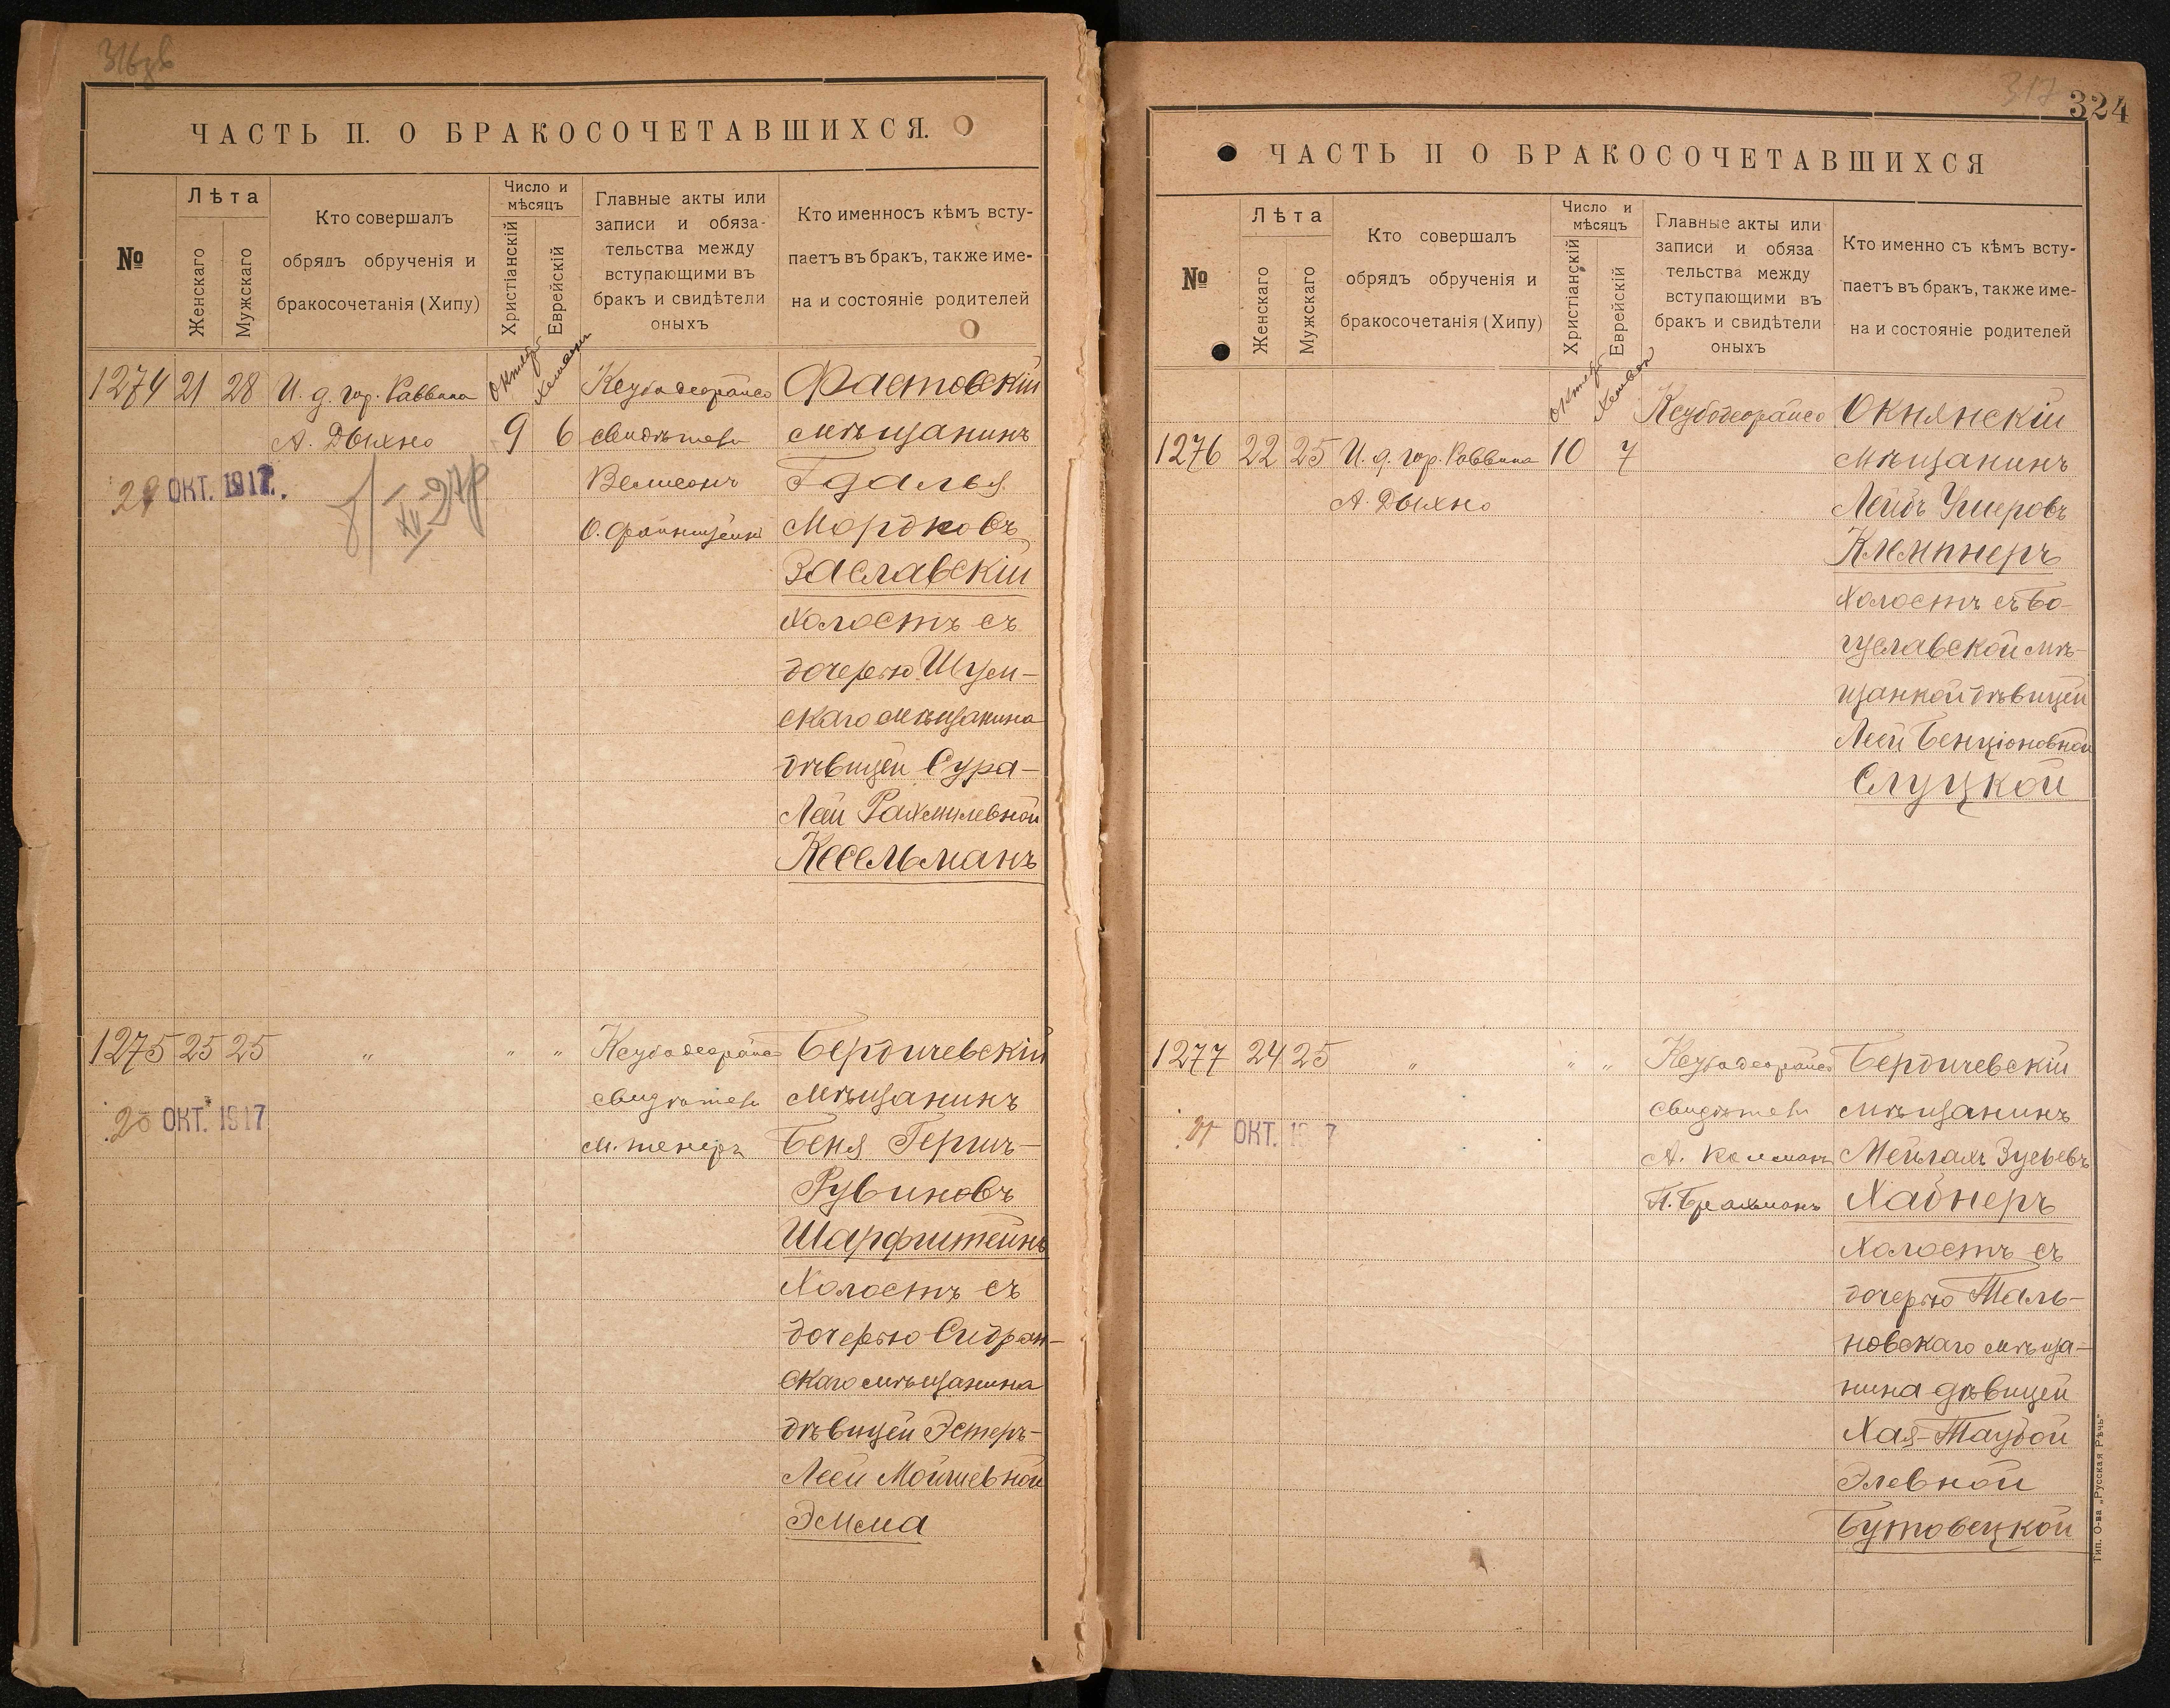 316зв
ЧАСТЬ II. О БРАКОСОЧЕТАВШИХСЯ.
№
Лѣта
Женскаго
Мужскаго
Кто совершалъ
обрядъ обрученія и
бракосочетанія (Хипу)
Число и
мѣсяцъ
Христіанскій
Еврейскій
Главные акты или
записи и обяза-
тельства между
вступающими въ
бракъ и свидѣтели
оныхъ
Кто именносъ кѣмъ всту-
паетъ въ бракъ, также име-
на и состояніе родителей
1274 21 28 И. д. гор. Раввина
А. Дыхно
Октябр
Хешван
9 6
29 ОКТ. 1917.
Ксубадеорайсо
свидѣтели
О. Файнштейнъ
Фастовскій
мѣщанинъ
Гдалья
Мордковъ
Заславскій
холостъ съ
дочерью Шум-
скаго мѣщанина
дѣвицей Сура-
Леей Рахмилевной
Кесельманъ
1275 25 25 " " "
20 ОКТ. 1917
Ксубадеорайсо
свидѣтели
М. Тенеръ
Бердичевскій
мѣщанинъ
Беня Гершъ-
Рувиновъ
Шарфштейнъ
холостъ съ
дочерью Сидран-
скаго мѣщанина
дѣвицей Эстеръ-
Леей Мошевной
Эмма
317
324
ЧАСТЬ II О БРАКОСОЧЕТАВШИХСЯ
№
Лѣта
Женскаго
Мужскаго
Кто совершалъ
обрядъ обрученія и
бракосочетанія (Хипу)
Число и
мѣсяцъ
Христіанскій
Еврейскій
Главные акты или
записи и обяза
тельства между
вступающими въ
бракъ и свидѣтели
оныхъ
Кто именно съ кѣмъ всту-
паетъ въ бракъ, также име-
на и состояніе родителей
Октябр
Хешван
1276 22 25 И. д. гор. Раввина 10 7
А. Дыхно
Ксубадеорайсо
Окнянскій
мѣщанинъ
Лейбъ Ушеровъ
Клемпнеръ
холостъ съ Бо-
гуславской мѣ-
щанкой дѣвицей
Леей Бенціоновной
Слуцкой
1277 24 25 " " "
ОКТ. 1917
Ксубадеорайсо
свидѣтели
А. Колманъ
П. Брахманъ
Бердичевскій
мѣщанинъ
Мейлахъ Зусьевъ
Хабнеръ
холостъ съ
дочерью Таль-
новскаго мѣща-
нина дѣвицей
Хая-Таубой
Элевной
Бутовецкой
Тип. О-ва „Русская Рѣчь"